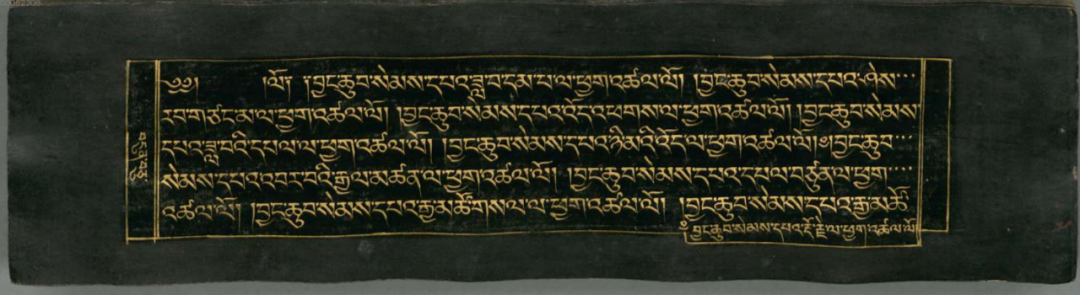 ༄༅། །ལོ། །བྱང་ཆུབ་སེམས་དཔའ་ཟླ་བ་དམ་པ་ལ་ཕྱག་འཚལ་ལོ། །བྱང་ཆུབ་སེམས་དཔའ་ཤེས་
རབ་གཙང་མ་ལ་ཕྱག་འཚལ་ལོ། །བྱང་ཆུབ་སེམས་དཔའ་འོད་འཕགས་ལ་ཕྱག་འཚལ་ལོ། །བྱང་ཆུབ་སེམས་
དཔའ་ཟླ་བའི་དཔལ་ལ་ཕྱག་འཚལ་ལོ། །བྱང་ཆུབ་སེམས་དཔའ་ཉི་མའི་འོད་ལ་ཕྱག་འཚལ་ལོ། །བྱང་ཆུབ་
སེམས་དཔའ་དབང་པོའི་རྒྱལ་མཚན་ལ་ཕྱག་འཚལ་ལོ། །བྱང་ཆུབ་སེམས་དཔའ་དཔལ་བརྩོན་ལ་ཕྱག་
འཚལ་ལོ། །བྱང་ཆུབ་སེམས་དཔའ་རྒྱ་མཚོགས་ལ་ལ་ཕྱག་འཚལ་ལོ། །བྱང་ཆུབ་སེམས་དཔའ་རྒྱ་མཚོ
བྱང་ཆུབ་སེམས་དཔའ་རྡོ་རྗེ་ལ་ཕྱག་འཚལ་ལོ